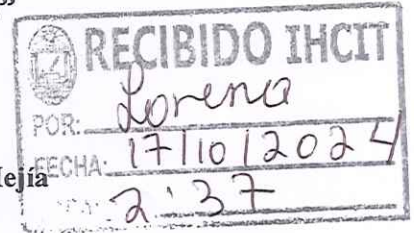 ”
RECIBIDO IHCIT
POR: Lorena
FECHA: 17/10/2024
2:37